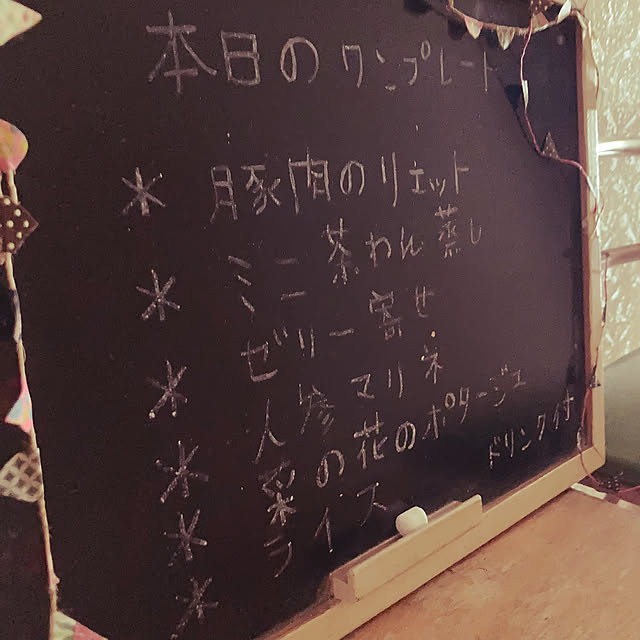 本日のワンプレート
* 豚肉のリエット
* ミニ茶わん蒸し
* ゼリー寄せ
* 人参マリネ
* 菜の花のポタージュ
* ライス
ドリンク付